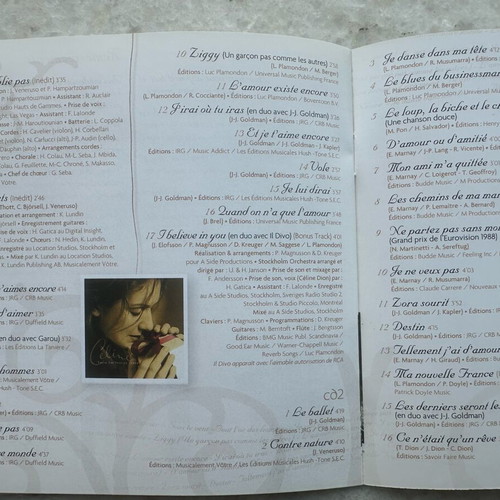 blie pas (inédit) 3'35
J. Veneruso et P. Hampartzoumian
Hampartzoumian • Assistant : R. Auclair
tudio Hauts de Garennes • Prise de voix :
ight, Las Vegas • Assistant : F. Lalonde
Hampartzoumian • Batterie : L. Coppola
Cordes : H. Cavelier (violon), H. Corbellari
(violon), N. Carlucci (alto), J-P. Audin (cello),
Dauphin (alto) • Arrangements cordes :
Veneruso • Chorale : H. Colau, L. Seba, J. Mbida,
Colau, G. Feuillite, M-C. Chronis, S. Makaya,
e • Chef de chœur : G. Colau
Vôtre.
ts (inédit) 2'46
Thott, C. Björsell, J. Veneruso)
ation & arrangement : K. Lundin
Björsell • Enregistrement guitares :
e de voix : H. Gatica au Digital Insight,
F. Lalonde • Chœurs : N. Hedin, K. Lundin,
Enregistré au Location Studios, Stockholm et
s • Mixé par K. Lundin au Location Studios,
K. Lundin Publishing AB, Musicalement Vôtre.
'aimes encore 4'16
: JRG / CRB Music
d'aimer 3'35
: JRG / Duffield Music
(en duo avec Garou) 3'51
ns : Les Éditions La Tanière /
hommes 3'10
Musicalement Vôtre /
sh - Tone S.E.C.
RG / CRB Music
pas 4'09
: JRG / Duffield Music
e monde 4'37
ns : JRG / CRB Music
10 Ziggy (Un garçon pas comme les autres) 2'58
(L. Plamondon / M. Berger)
Éditions : Luc Plamondon / Universal Music Publishing France
11 L'amour existe encore 3'50
(L. Plamondon / R. Cocciante) • Éditions : Luc Plamondon / Boventoon b.v.
12 J'irai où tu iras (en duo avec J-J. Goldman)
(J-J. Goldman) • Éditions : JRG / CRB Music
13 Et je t'aime encore
(J-J. Goldman / J-J. Goldman - J. Kapler)
Éditions : JRG / Music Addict / Les Éditions Musicales Hush-Tone S.E.C.
14 Vole
(J-J. Goldman) • Éditions : JRG / CRB Music
15 Je lui dirai
(J-J. Goldman) • Éditions : JRG / CRB Music
16 Quand on n'a que l'amour
(J. Brel) • Éditions : Universal Music Publishing France
17 I believe in you (en duo avec Il Divo) (Bonus Track) 4'01
(J. Elofsson / P. Magnusson / D. Kreuger / M. Saggese / L. Plamondon)
Réalisation & arrangements : P. Magnusson & D. Kreuger
pour A Side Productions • Stockholm Orchestra arrangé et
dirigé par : U. & H. Janson • Prise de son et mixage par :
F. Andersson • Prise de son, voix (Céline Dion) par :
H. Gatica • Assistant : F. Lalonde • Enregistré
au A Side Studios, Stockholm, Sveriges Radio Studio 2
Stockholm & Studio Piccolo, Montréal
Mixé au A Side Studios, Stockholm
Claviers : P. Magnusson • Programmations : D. Kreuger
Guitares : M. Berntoft • Flûte : J. Bengtsson
Éditions : BMG Music Publ. Scandinavia /
Good Ear Music / Warner-Chappell Music /
Reverb Songs / Luc Plamondon
Il Divo apparaît avec l'aimable autorisation de RCA
cd2
1 Le ballet 4'19
(J-J. Goldman)
Éditions : JRG / CRB Music
2 Contre nature 4'30
(J. Veneruso)
Éditions : Musicalement Vôtre / Les Éditions Musicales Hush-Tone S.E.C.
3 Je danse dans ma tête
(L. Plamondon / R. Musumarra) • Éditions
4 Le blues du businessma
(L. Plamondon / M. Berger)
Éditions : Luc Plamondon / Universal Mus
5 Le loup, la biche et le ch
(Une chanson douce)
(M. Pon / H. Salvador) • Éditions : Henry
6 D'amour ou d'amitié
(E. Marnay / J-P. Lang - R. Vincente) • Éd
7 Mon ami m'a quittée
(E. Marnay / C. Loigerot - T. Geoffroy)
Éditions : Budde Music / MC Prod
8 Les chemins de ma mai
(E. Marnay / P. Lemaitre - A. Bernard)
Éditions : Budde Music / MC Prod
9 Ne partez pas sans mo
(Grand prix de l'Eurovision 1988)
(N. Martinetti / A. Sereftug)
Éditions : Budde Music / Feeling Inc /
10 Je ne veux pas 4'13
(E. Marnay / R. Musumarra)
Éditions : Claude Carrere / Nouveaux
11 Zora sourit 3'52
(J-J. Goldman / J. Kapler) • Éditions
12 Destin 4'15
(J-J. Goldman) • Éditions : JRG / CRB
13 Tellement j'ai d'amour
(E. Marnay / H. Giraud) • Éditions : Budde
14 Ma nouvelle France
(L. Plamondon / P. Doyle) • Éditions
Patrick Doyle Music
15 Les derniers seront le
(en duo avec J-J. Goldman)
(J-J. Goldman) • Éditions : JRG / CRB
16 Ce n'était qu'un rêve
(T. Dion / J. Dion - C. Dion)
Éditions : Savoir Faire Music